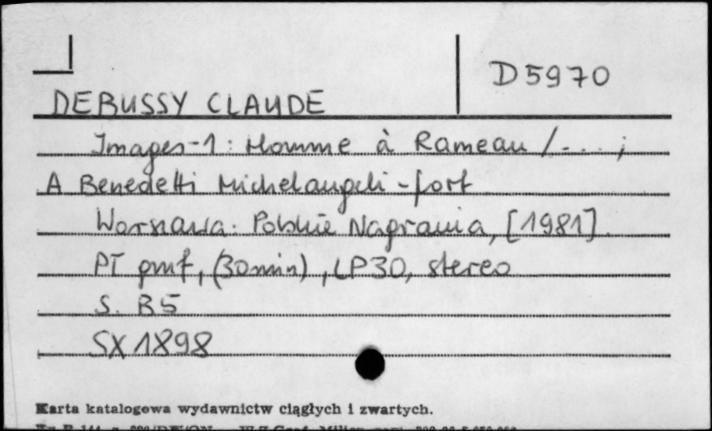 D5970
DEBUSSY CLAUDE
Images-1: Homme à Rameau /... ;
A Benedetti Michelangeli - fort
Warszawa: Polskie Nagrania, [1981]
PT pmf, (30min), LP30, stereo
S. B5
SX 1898
Karta katalogowa wydawnictw ciągłych i zwartych.